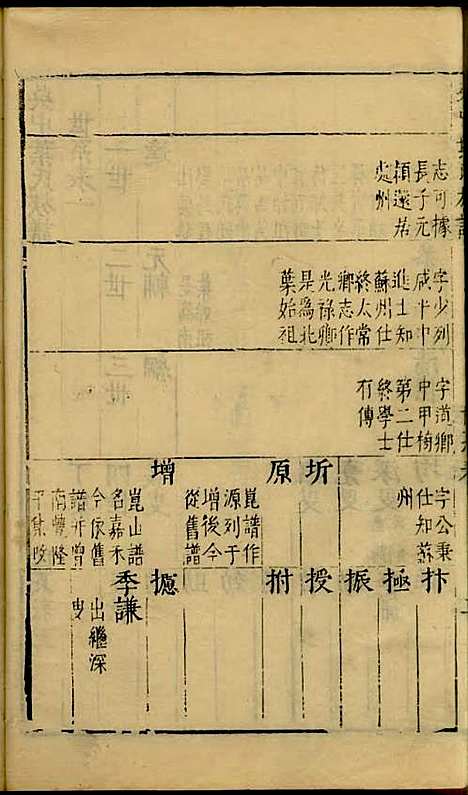 志可據
長子元
穎遷居
处州
字少列
咸平中
進士知
蘇州仕
終太常
卿志作
光祿卿
是為北
葉始祖
字道鄉
中甲榜
第二仕
終學士
有傳
字公秉
仕知蘇
州
圻
原
崑譜作
源列于
增後今
從舊譜
增
崑山譜
名嘉禾
今依舊
譜
南
抃
極
振
授
拊
摅
季謙
出繼深
叟